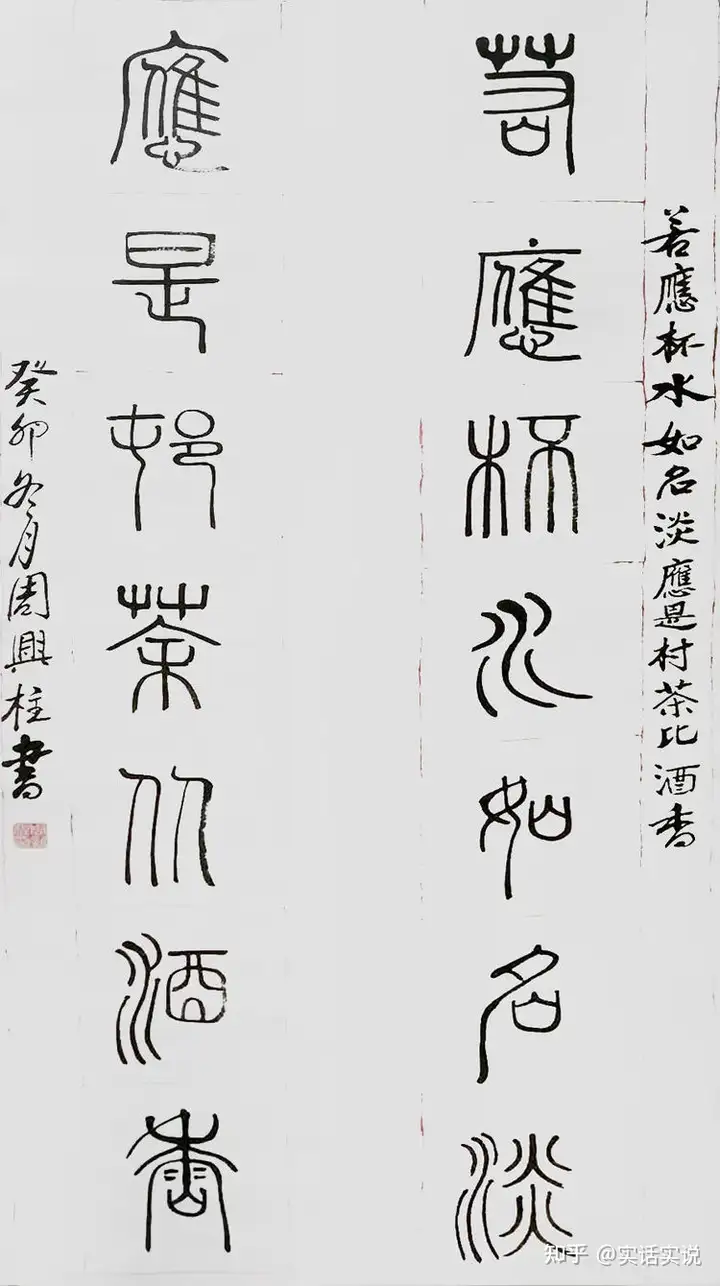 若應杯水如名淡應是村茶比酒香
若應杯水如名淡
應是邨茶比酒香
癸卯冬月周興柱書
知乎 @实话实说